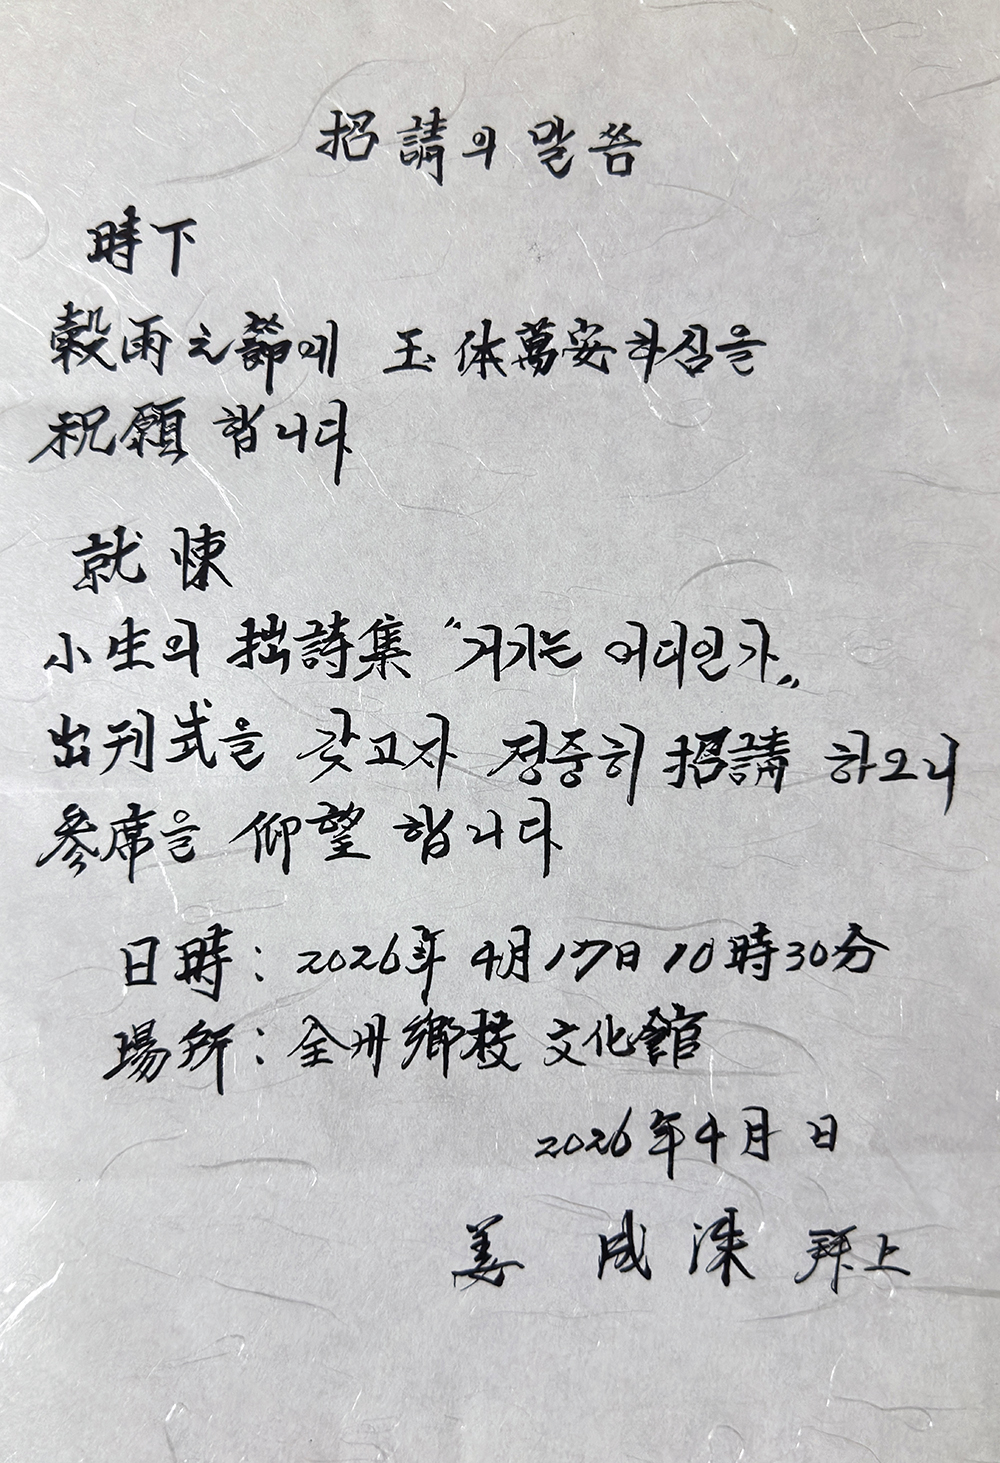 招請의 말씀
時下
穀雨之節에 玉体萬安하심을
祝願 합니다
就悚
小生의 拙詩集 “거기는 어디인가„
出刊式을 갖고자 정중히 招請 하오니
參席을 仰望 합니다
日時: 2026年 4月 17日 10時30分
場所: 全州鄕校 文化館
2026年 4月 日
姜 成洙 拜上